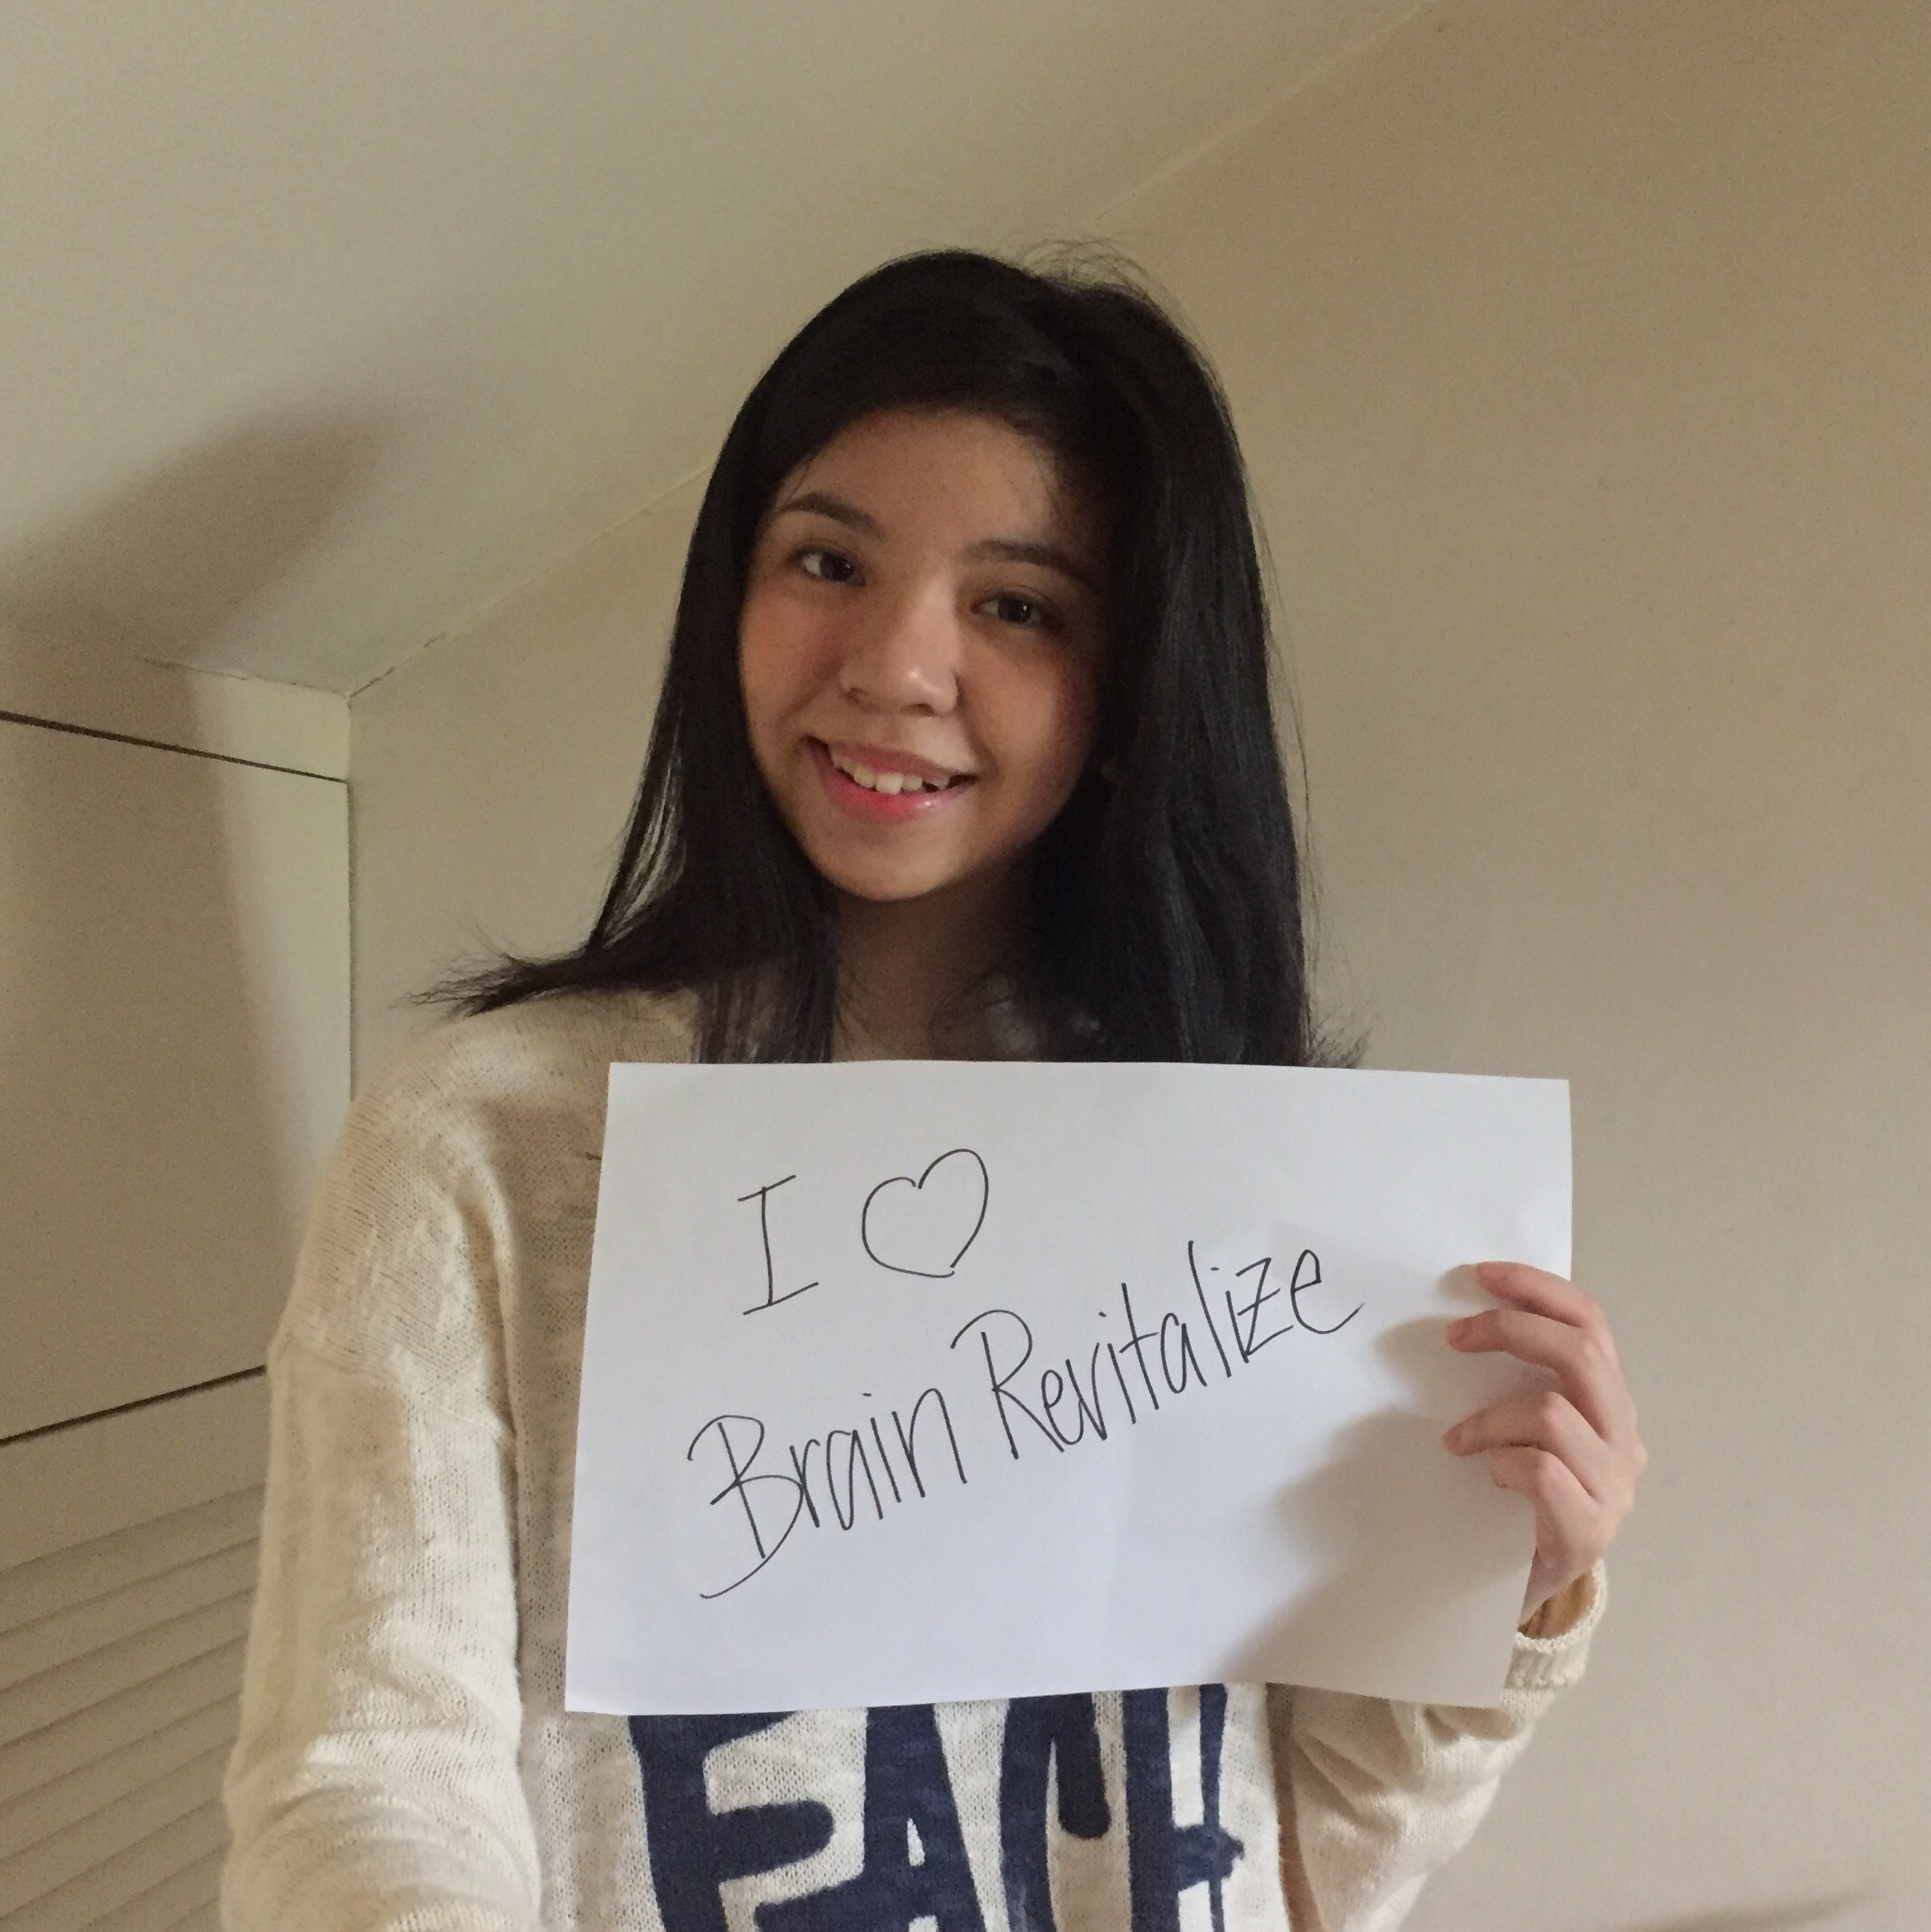 I ♡
Brain Revitalize
EACH